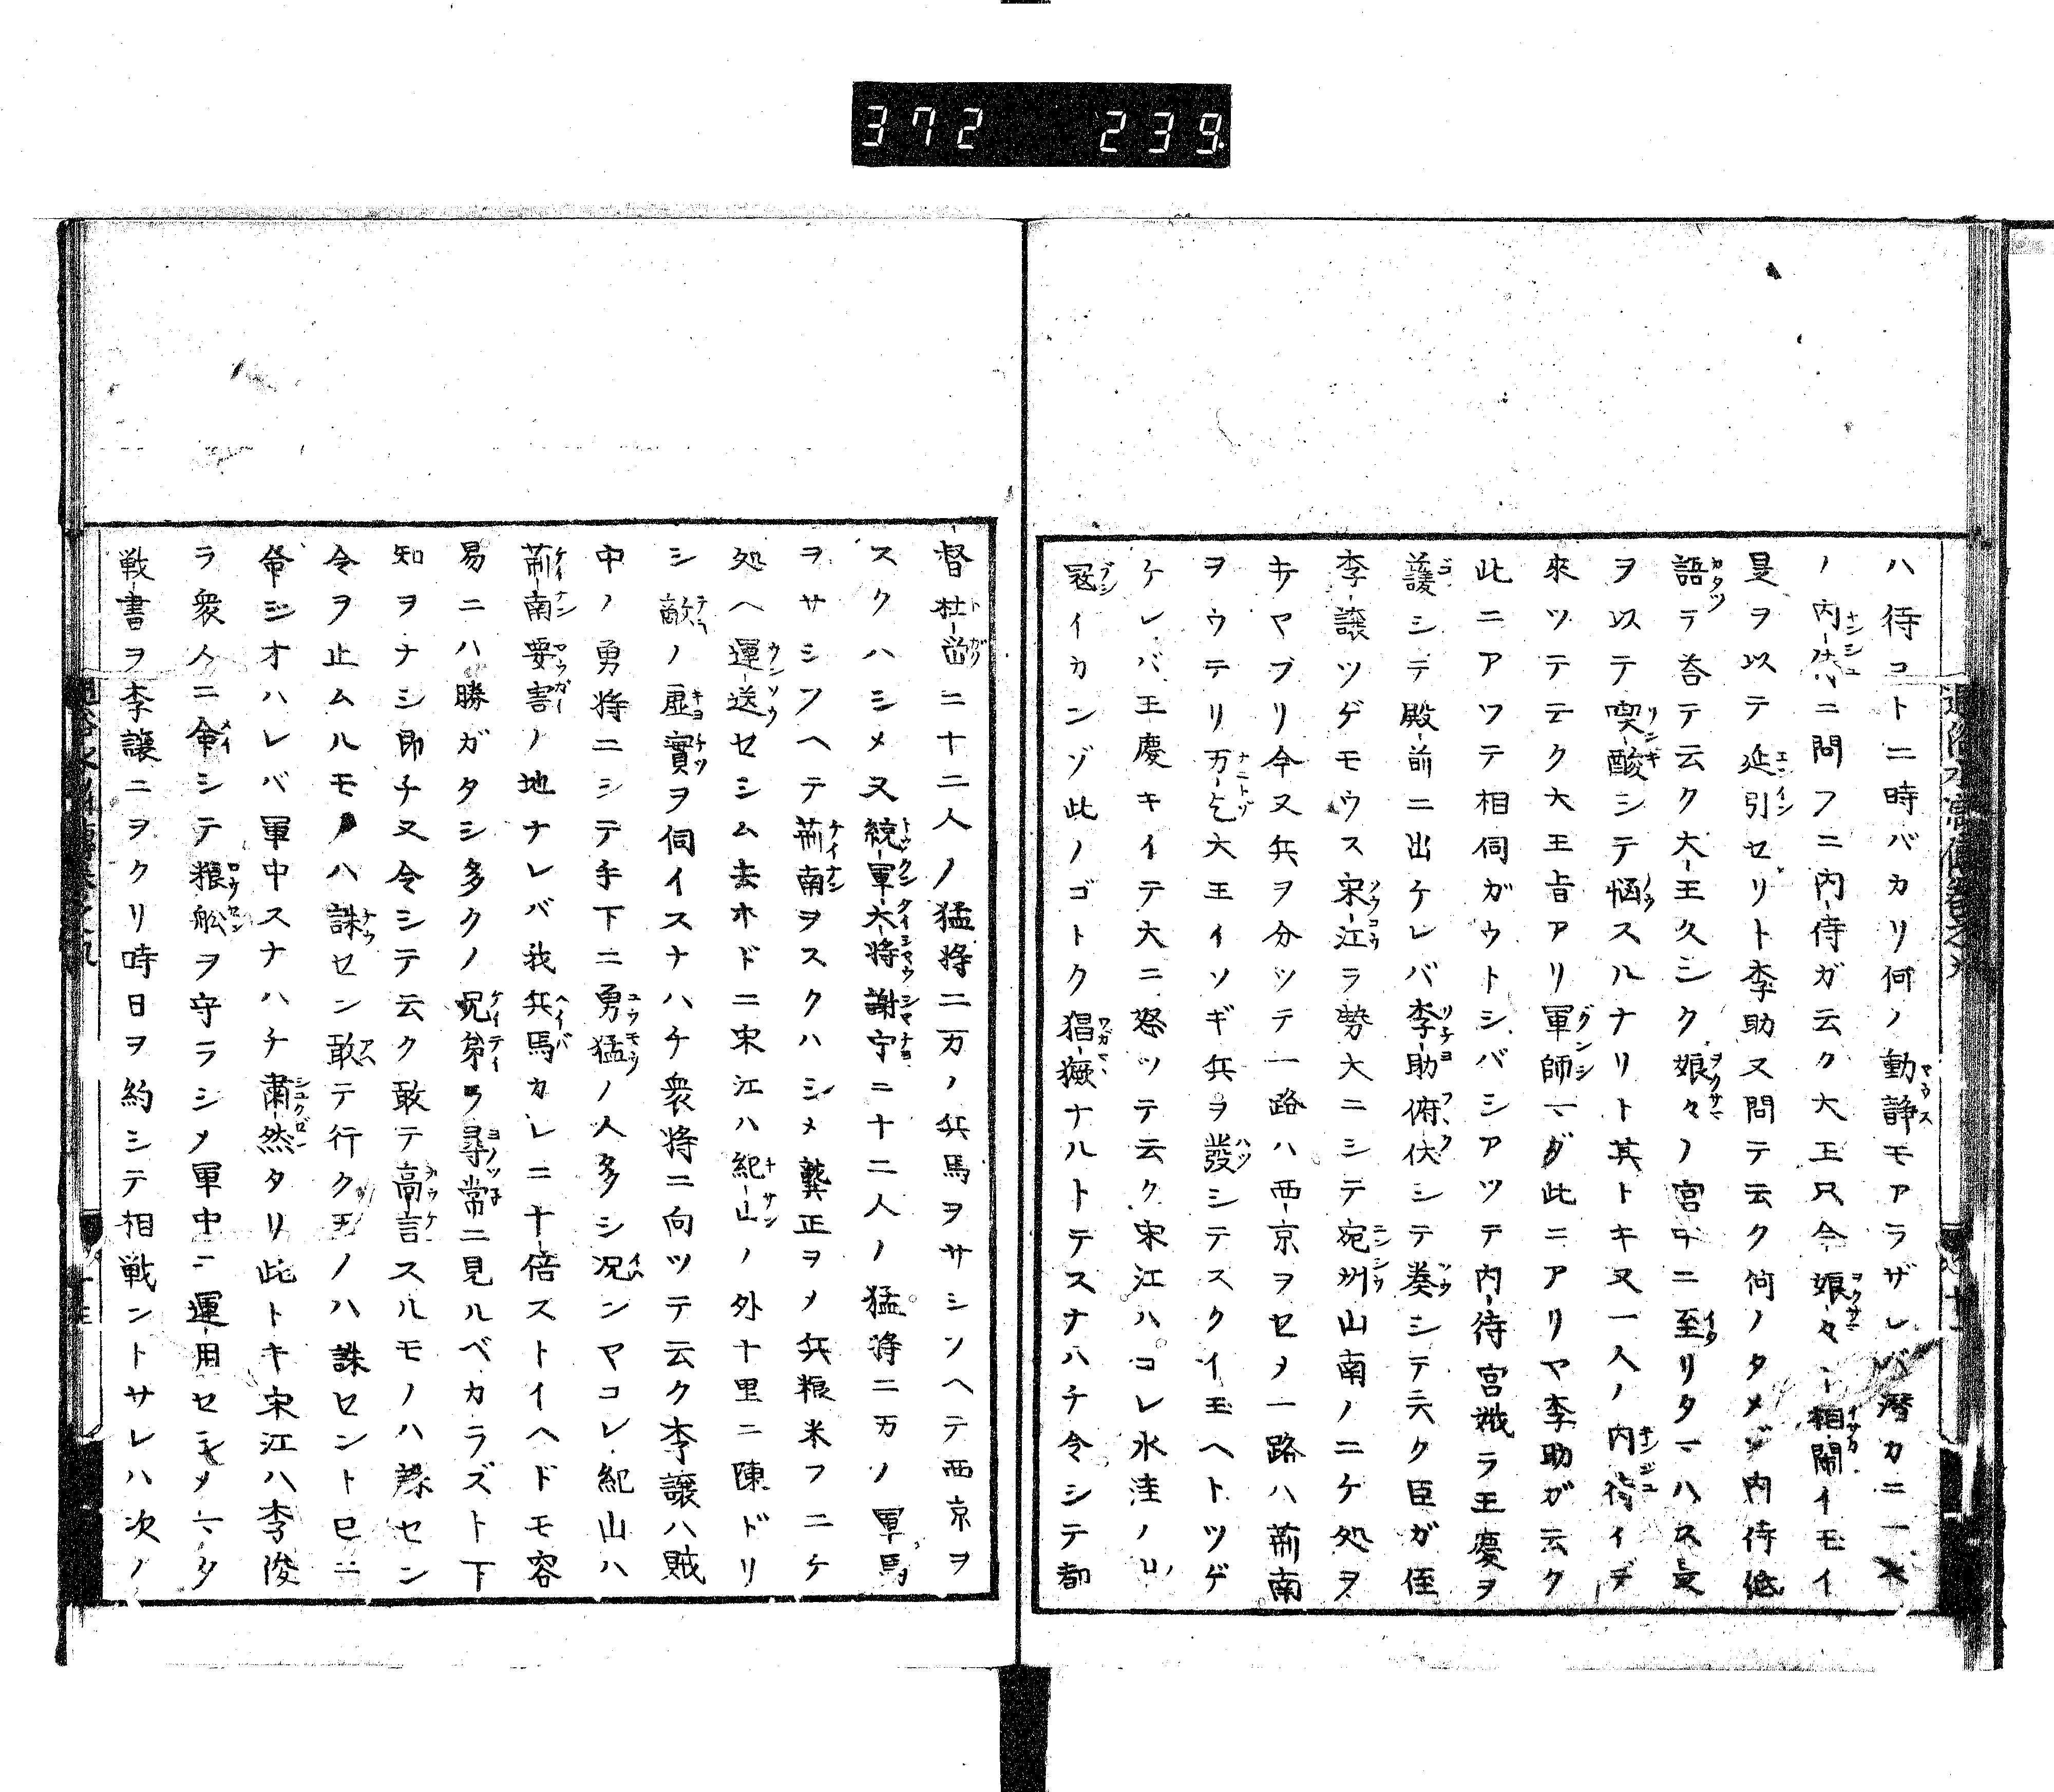 372 239
ハ待コト二時バカリ何ノ動静モアラザレバ潜カニ一人
ノ内侍ニ問フニ内侍ガ云ク大王只今娘々ト相鬧イモイ
是ヲ以テ延引セリト李助又問テ云ク何ノタメゾ内侍低
語テ荅テ云ク大王久シク娘々ノ宮中ニ至リタマハス
ヲ以テ喫酸シテ悩スルナリト其トキ又一人ノ内侍イデ
來ツテ云ク大王旨アリ軍師マダ此ニアリヤ李助ガ云ク
此ニアツテ相伺ガウトシバシアツテ内待宮娥ラ王慶ヲ
護シテ殿前ニ出ケレバ李助俯伏シテ奏シテ云ク臣ガ侄
李讓ツゲモウス宋江ラ勢大ニシテ宛州山南ノ二ケ処ヲ
キヤブリ今又兵ヲ分ツテ一路ハ西京ヲセメ一路ハ荊南
ヲウテリ万乞大王イソギ兵ヲ發シテスクイ玉ヘトツゲ
ケレバ王慶キイテ大ニ怒ツテ云ク宋江ハコレ水洼ノ
冦イカンゾ此ノゴトク猖獗ナルトテスナハチ令シテ都
督杜壆ニ十二人ノ猛将二万ノ兵馬ヲサシソヘテ西京ヲ
スクハシメ又統軍大将謝宁ニ十二人ノ猛将二万ノ軍馬
ヲサシソヘテ荊南ヲスクハシメ龔正ヲメ兵粮米フニケ
処ヘ運送セシム去ホドニ宋江ハ紀山ノ外十里ニ陳ドリ
シ敵ノ虚實ヲ伺イスナハチ衆将ニ向ツテ云ク李讓ハ賊
中ノ勇将ニシテ手下ニ勇猛ノ人多シ况ンヤコレ紀山ハ
荊南要害ノ地ナレバ我兵馬カレニ十倍ストイヘドモ容
易ニハ勝ガタシ多クノ兄弟ラ尋常ニ見ルベカラズト下
知ヲナシ即チ又令シテ云ク敢テ高言スルモノハ殊セン
令ヲ止ムルモノハ誅セン敢テ行クモノハ誅セント已ニ
命シオハレバ軍中スナハチ肅然タリ此トキ宋江ハ李俊
ラ衆人ニ命シテ粮舩ヲ守ラシメ軍中ニ運用セシメニタ
戦書ヲ李讓ニヲクリ時日ヲ約シテ相戦ントサレハ次ノ